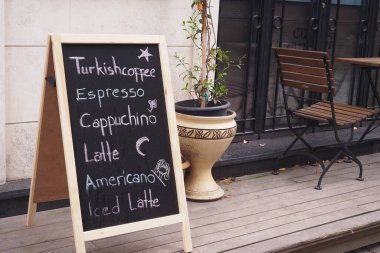 Turkishcoffee
Espresso
Cappuchino
Latte
Americano
Iced Latte